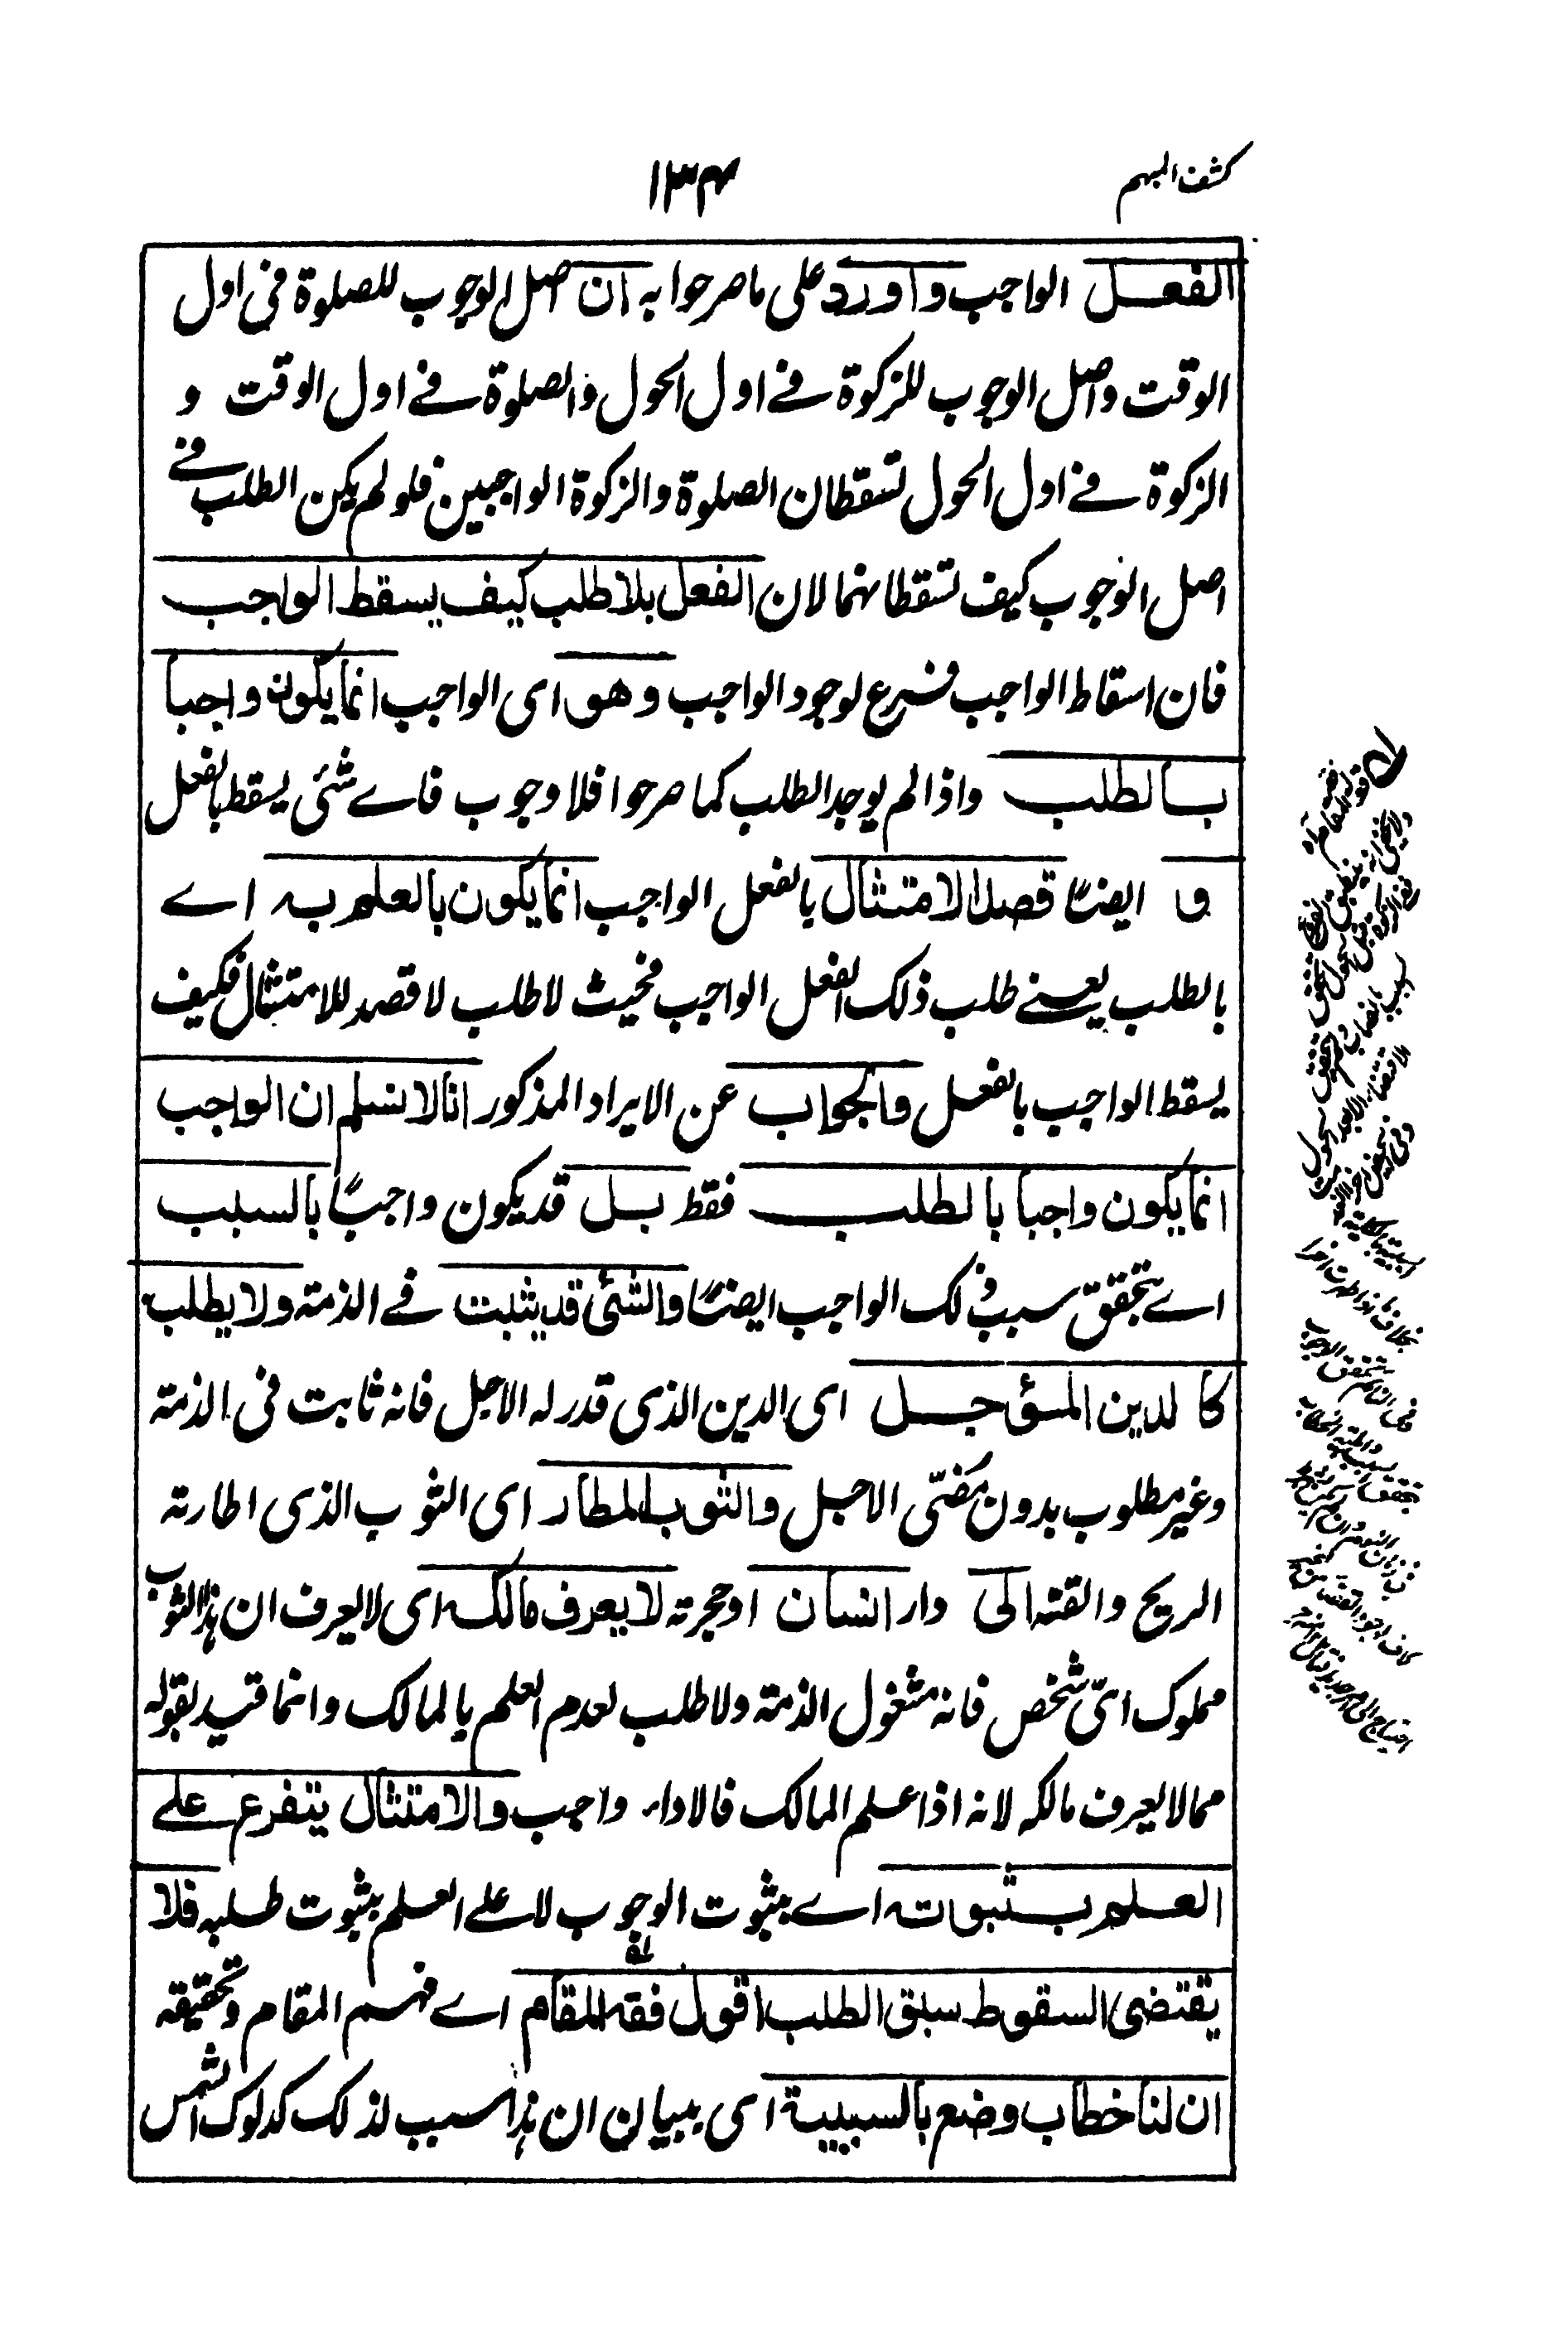 كشف المبهم
١٣٤
الفعل الواجب واورد على ما صرحوا به ان اصل الوجوب للصلوة فى اول
الوقت واصل الوجوب للزكوة فے اول الحول والصلوة فے اول الوقت و
الزكوة فے اول الحول تسقطان الصلوة والزكوة الواجبين فلو لم يكن الطلب فے
اصل الوجوب كيف تسقطانهما لان الفعل بلا طلب كيف يسقط الواجب
فان اسقاط الواجب فرع لوجود الواجب وهو اى الواجب انما يكون واجبا
بالطلب واذا لم يوجد الطلب كما صرحوا فلا وجوب فاے شئى يسقط بالفعل
و ايضًا قصد الامتثال بالفعل الواجب انما يكون بالعلم به اے
بالطلب يعنے طلب ذلك الفعل الواجب فحيث لا طلب لا قصد للامتثال فكيف
يسقط الواجب بالفعل والجواب عن الايراد المذكور انا لا نسلم ان الواجب
انما يكون واجبا بالطلب فقط بل قد يكون واجبًا بالسبب
اے بتحقق سبب ذلك الواجب ايضًا والشئ قد يثبت فے الذمة ولا يطلب
كالدين المؤجل اى الدين الذى قدر له الاجل فانه ثابت فى الذمة
وغير مطلوب بدون مضّى الاجل والثوب المطار اى الثوب الذى اطارته
الريح والقته الى دار انسان او حجرته لا يعرف مالكه اى لا يعرف ان هذا الثوب
مملوك اىّ شخص فانه مشغول الذمة ولا طلب لعدم العلم بالمالك وانما قيد بقوله
مما لا يعرف مالكه لانه اذا علم المالك فالاداء واجب والامتثال يتفرع علے
العلم بثبوته اے بثبوت الوجوب لا علے العلم بثبوت طلبه فلا
يقتضى السقوط سبق الطلب اقول فقه المقام اے فهم المقام وتحقيقه
ان لنا خطاب وضع بالسببية اى ببيان ان هذا سبب لذلك كدلوك الشمس